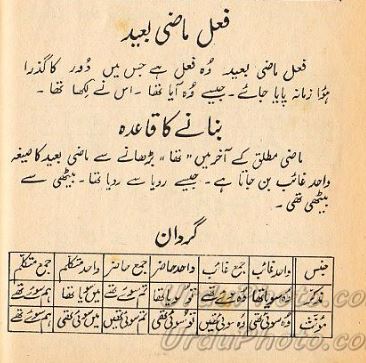 فعل ماضی بعید
فعل ماضی بعید وُہ فعل ہے جس میں دُور کا گذرا
ہوُا زمانہ پایا جائے۔ جیسے وُہ آیا تھا۔ اس نے لکھا تھا۔
بنانے کا قاعدہ
ماضی مطلق کے آخر میں "تھا" بڑھانے سے ماضی بعید کا صیغہ
واحد غائب بن جاتا ہے۔ جیسے رویا سے رویا تھا۔ بیٹھی سے
بیٹھی تھی۔
گردان
جنس واحد غائب جمع غائب واحد حاضر جمع حاضر واحد متکلم جمع متکلم
مذکر وُہ سویا تھا وُہ سوئے تھے تو سویا تھا تم سوئے تھے میں سویا تھا ہم سوئے تھے
مؤنث وُہ سوئی تھی وُہ سوئی تھیں تو سوئی تھی تم سوئی تھیں میں سوئی تھی ہم سوئے تھے
UrduPhoto.co
UrduPhoto.co